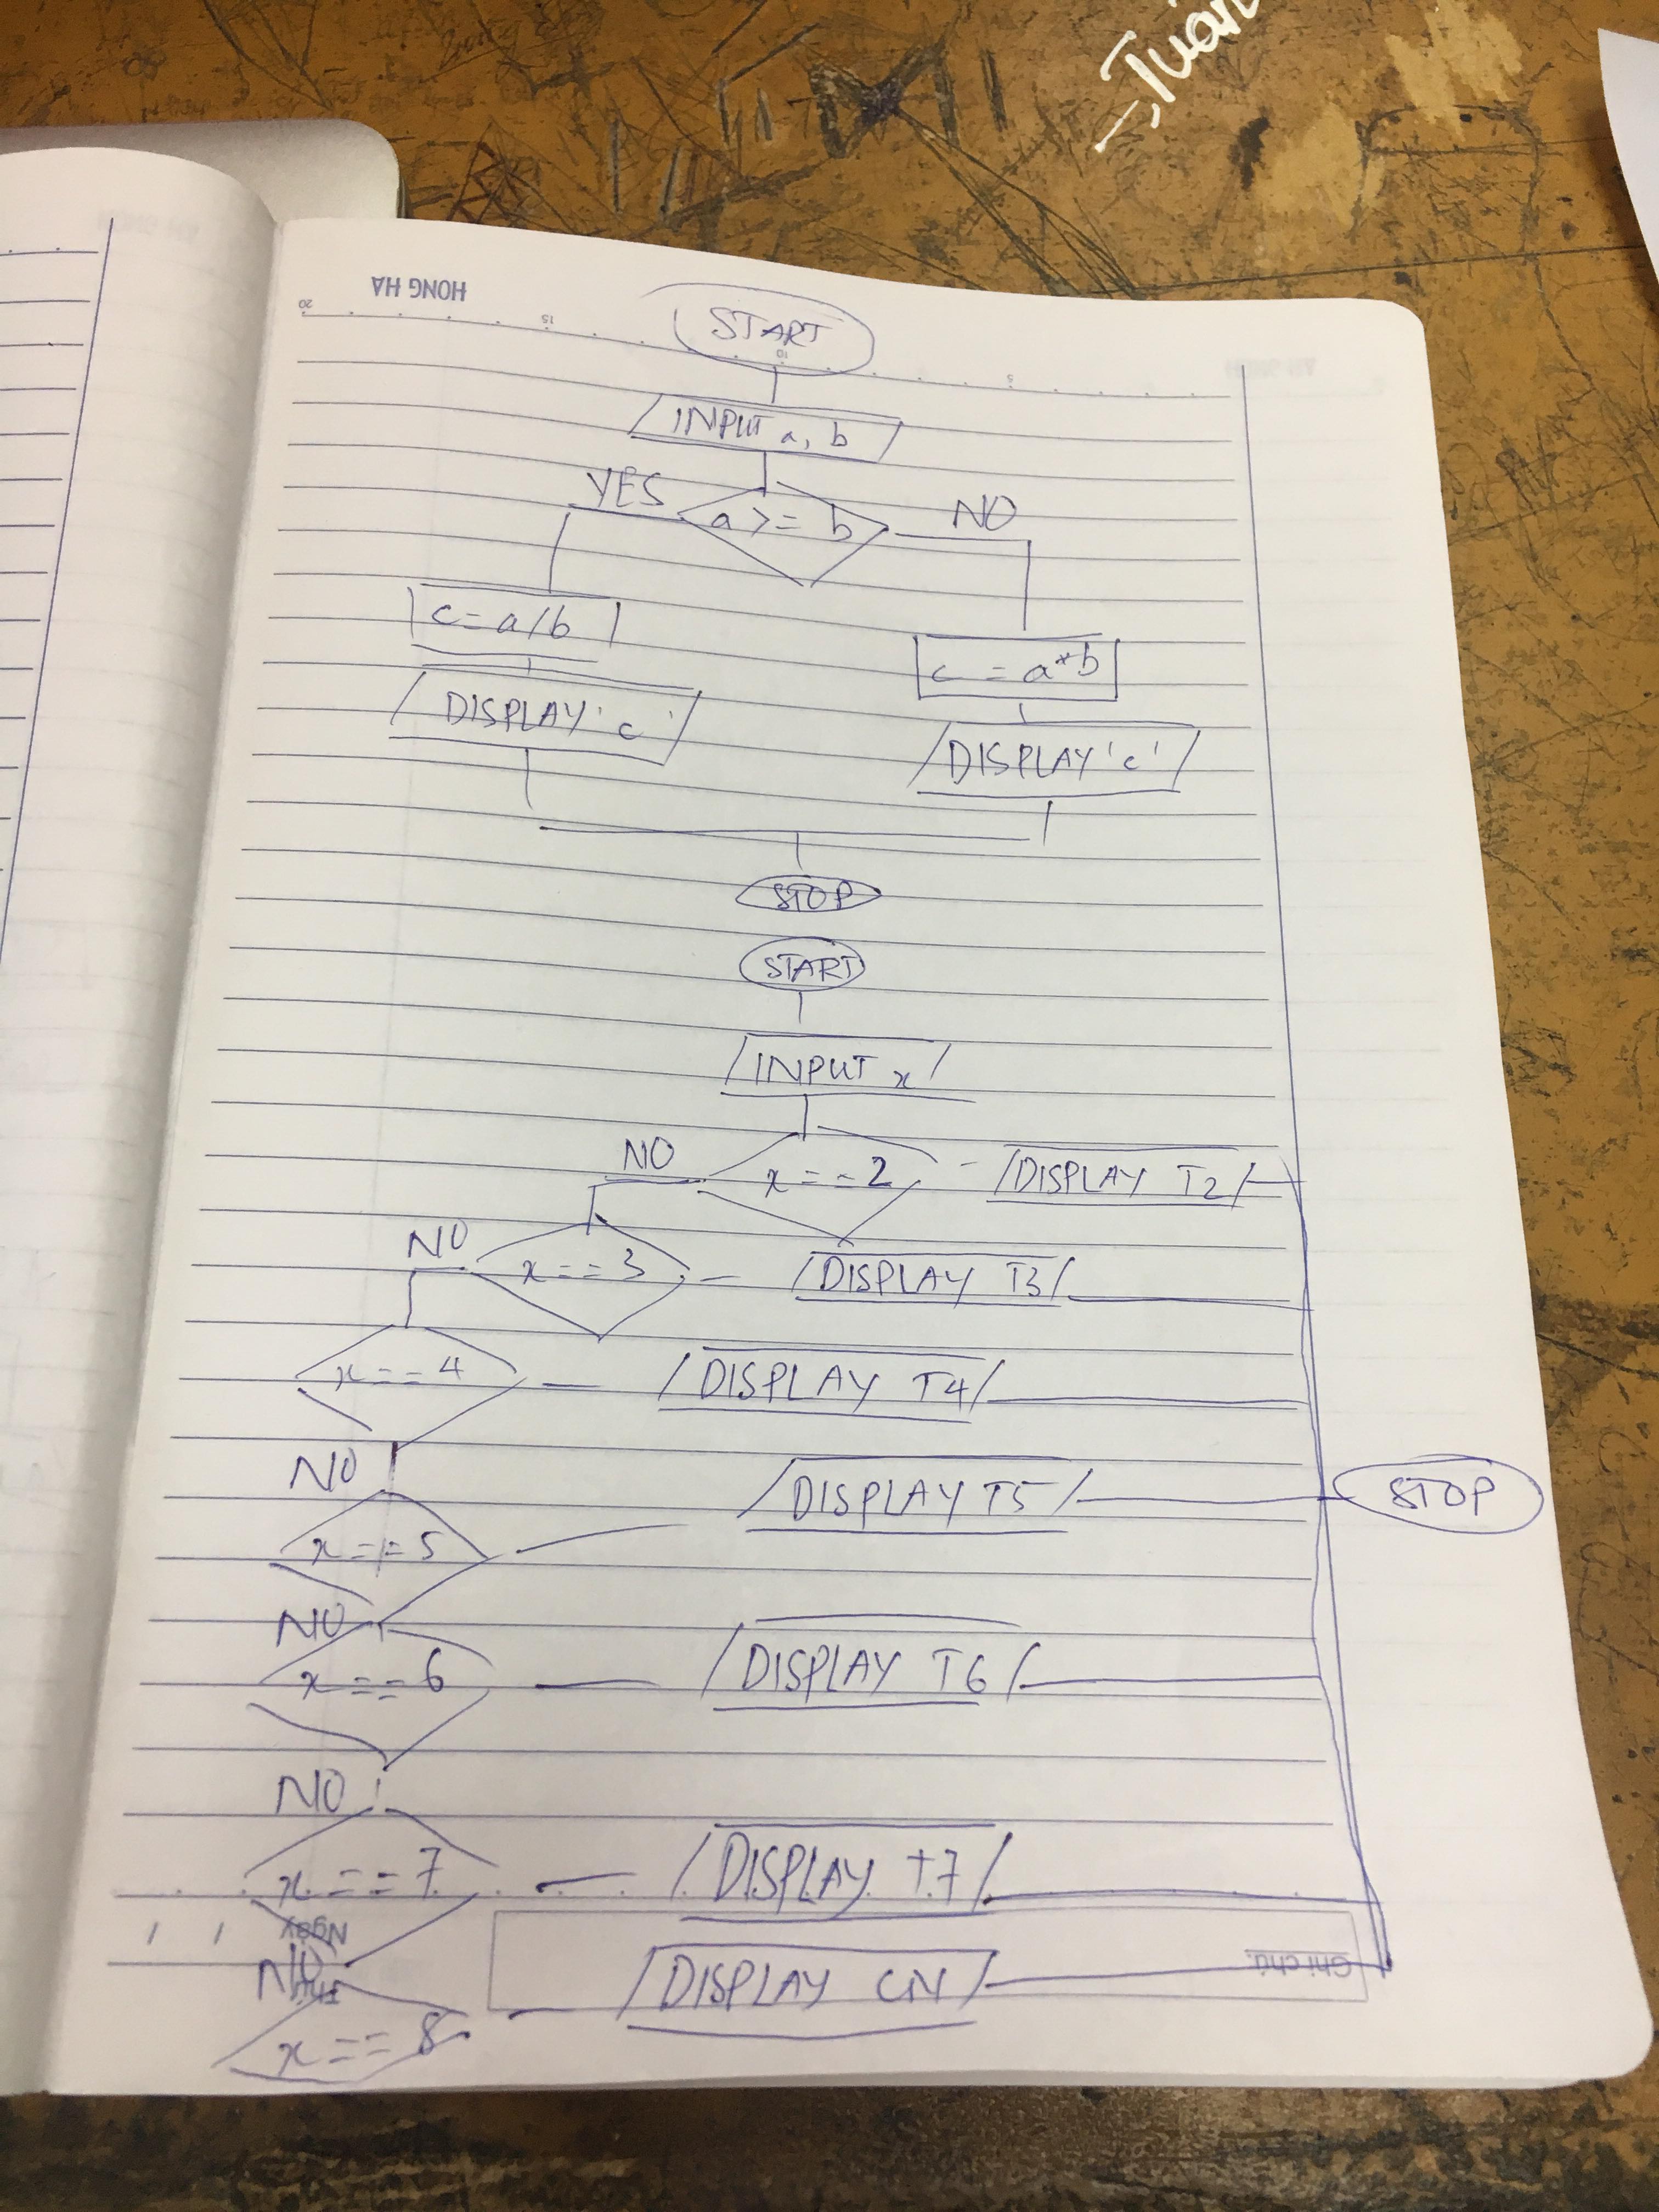 Tuấn
HONG HA
20 15 10 5
START
INPUT a, b
YES a >= b NO
c = a/b
c = a*b
DISPLAY 'c'
DISPLAY 'c'
STOP
START
INPUT x
NO x == 2 DISPLAY T2
NO x == 3 DISPLAY T3
x == 4 DISPLAY T4
NO
DISPLAY T5 STOP
x == 5
NO
x == 6 DISPLAY T6
NO
x == 7 DISPLAY T7
Ngày
Ghi chú:
NO
Thứ
DISPLAY CN
x == 8